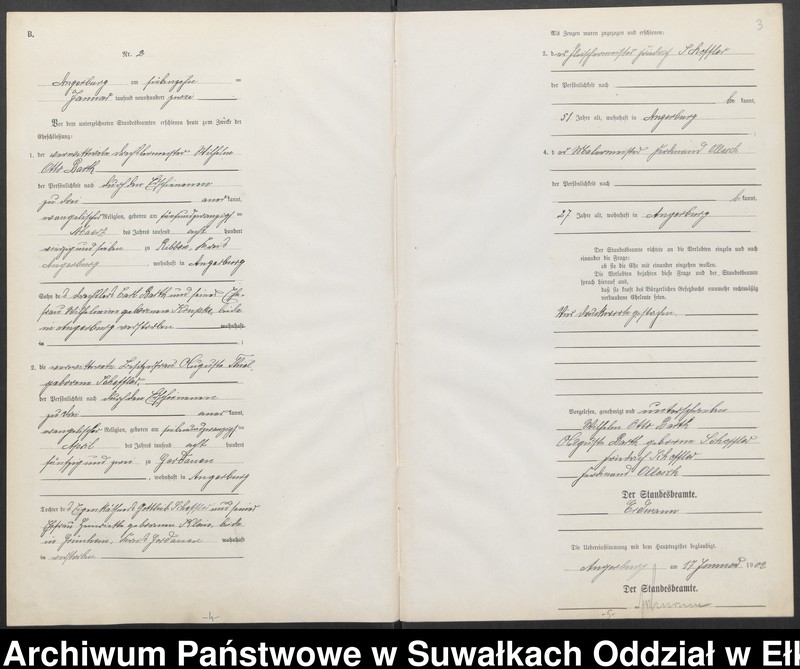 B.
Nr. 2
Angerburg am siebenzehnten
Januar tausend neunhundert zwei
Vor dem unterzeichneten Standesbeamten erschienen heute zum Zwecke der
Eheschließung:
1. der verwittwete Drechslermeister Wilhelm
Otto Barth
der Persönlichkeit nach durch den
zu drei anerkannt,
evangelischer Religion, geboren am fünfundzwanzigsten
März des Jahres tausend acht hundert
vierzig und sieben zu Ribben, Kreis
Angerburg, wohnhaft in Angerburg
Sohn des Drechslers Carl Barth und seiner Ehe-
frau Wilhelmine geborenen beide
in Angerburg verstorben wohnhaft
in
2. die verwittwete Besitzerfrau Auguste Thiel,
geborene Scheffler,
der Persönlichkeit nach durch den
zu drei anerkannt,
evangelischer Religion, geboren am siebenundzwanzigsten
April des Jahres tausend acht hundert
fünfzig und zwei zu Gerdauen
, wohnhaft in Angerburg
Tochter des Eigenkäthners Gottlieb Scheffler und seiner
Ehefrau Henriette geborenen Klein, beide
in Kreis Gerdauen wohnhaft
in verstorben
-4-
3
Als Zeugen waren zugezogen und erschienen:
3. der Fleischermeister Friedrich Scheffler
der Persönlichkeit nach
bekannt,
51 Jahre alt, wohnhaft in Angerburg
4. der Malermeister Ferdinand Ollesch
der Persönlichkeit nach
bekannt,
27 Jahre alt, wohnhaft in Angerburg
Der Standesbeamte richtete an die Verlobten einzeln und nach
einander die Frage:
ob sie die Ehe mit einander eingehen wollen.
Die Verlobten bejahten diese Frage und der Standesbeamte
sprach hierauf aus,
daß sie kraft des Bürgerlichen Gesetzbuchs nunmehr rechtmäßig
verbundene Eheleute seien.
Vorgelesen, genehmigt und unterschrieben
Wilhelm Otto Barth
Auguste Barth geborene Scheffler
Friedrich Scheffler
Ferdinand Ollesch
Der Standesbeamte.
Erdmann
Die Uebereinstimmung mit dem Hauptregister beglaubigt.
Angerburg am 17 Januar 1902
Der Standesbeamte.
-5-
Archiwum Państwowe w Suwałkach Oddział w Eł